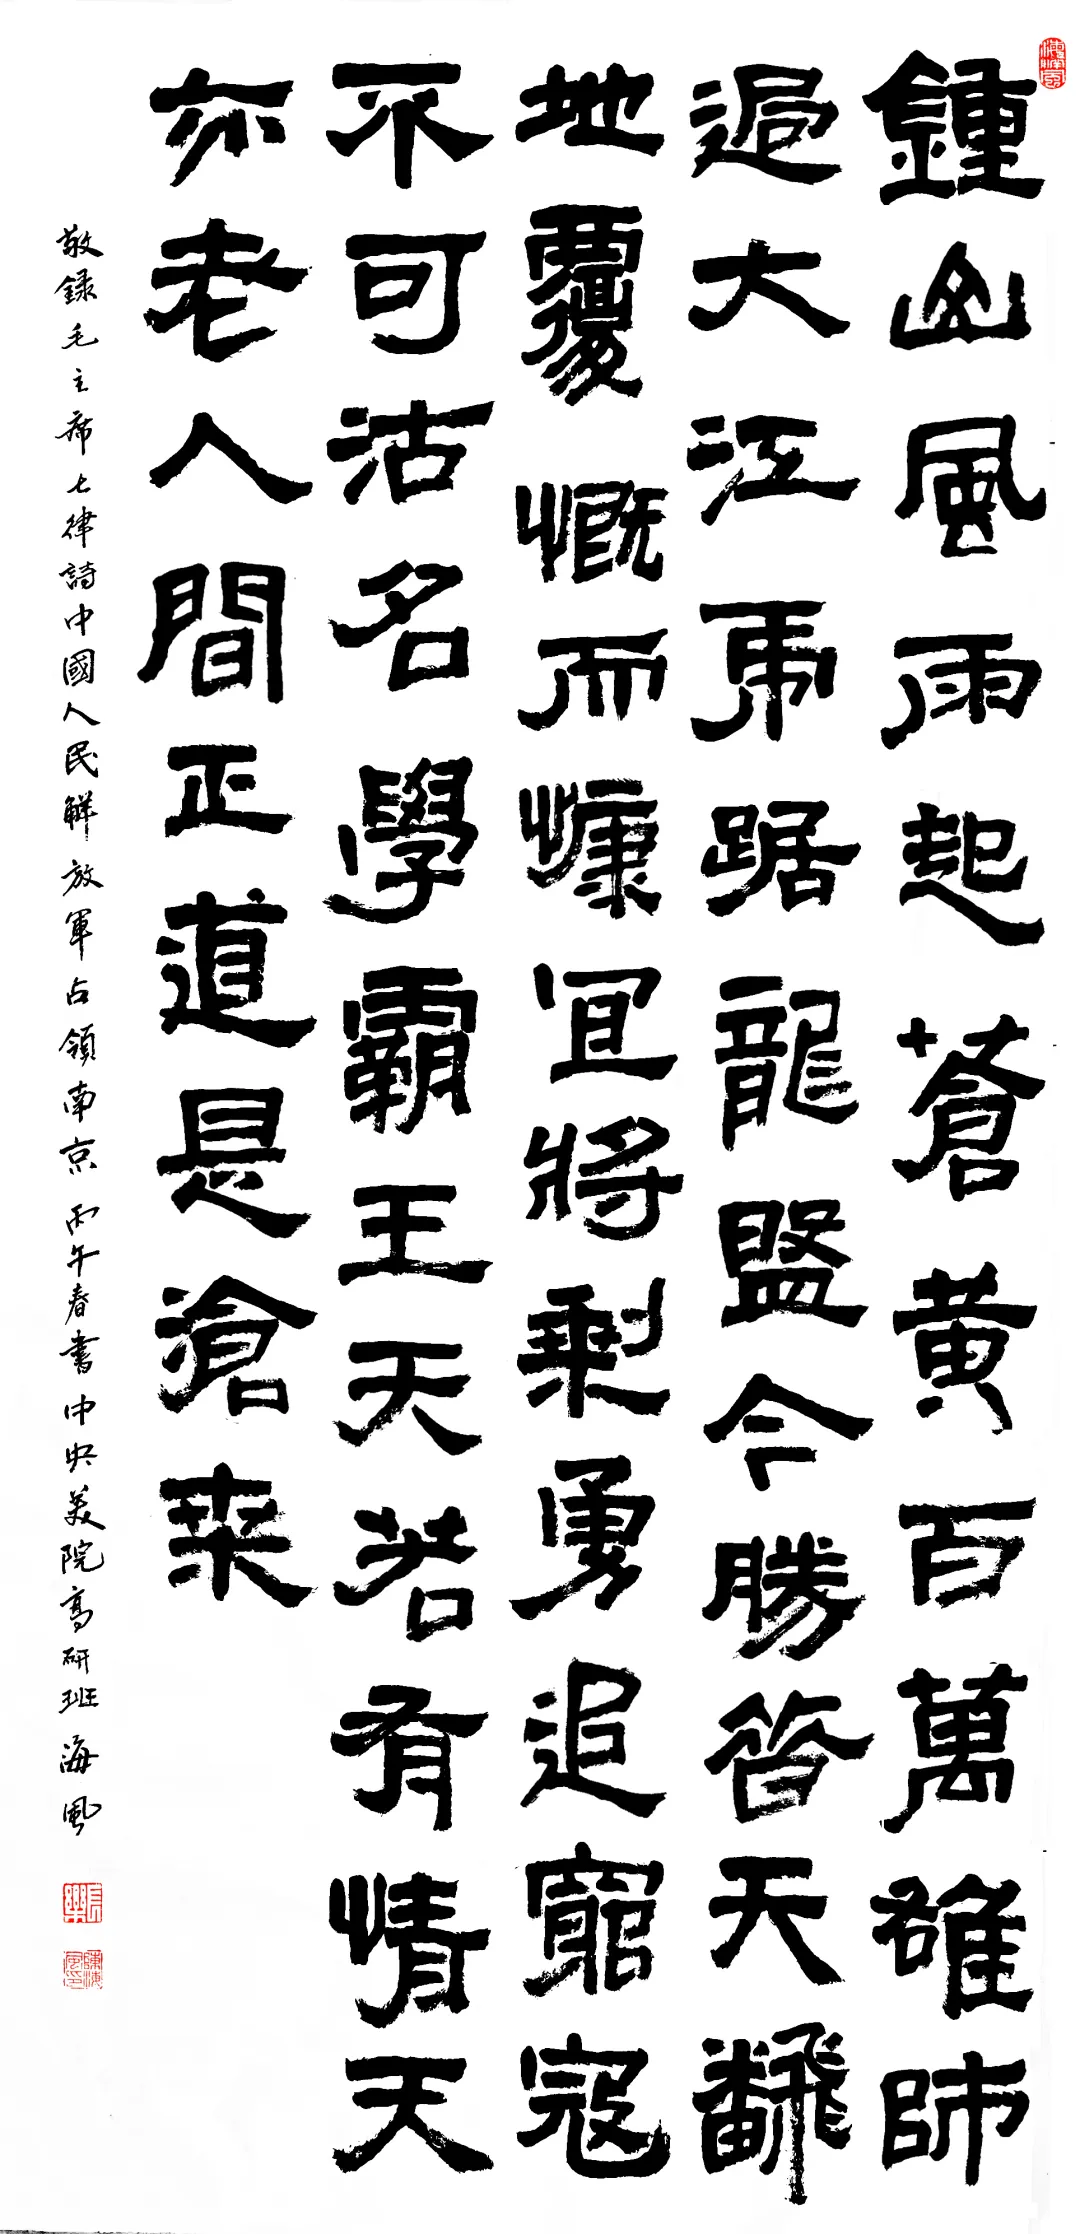 鍾山風雨起蒼黄百萬雄師
過大江虎踞龍盤今勝昔天飜
地覆慨而慷宜將剩勇追窮寇
不可沽名學霸王天若有情天
亦老人間正道是滄桑
敬録毛主席七律詩中國人民解放軍占領南京 丙午春書中央美院高研班海風
長樂
陳海風印